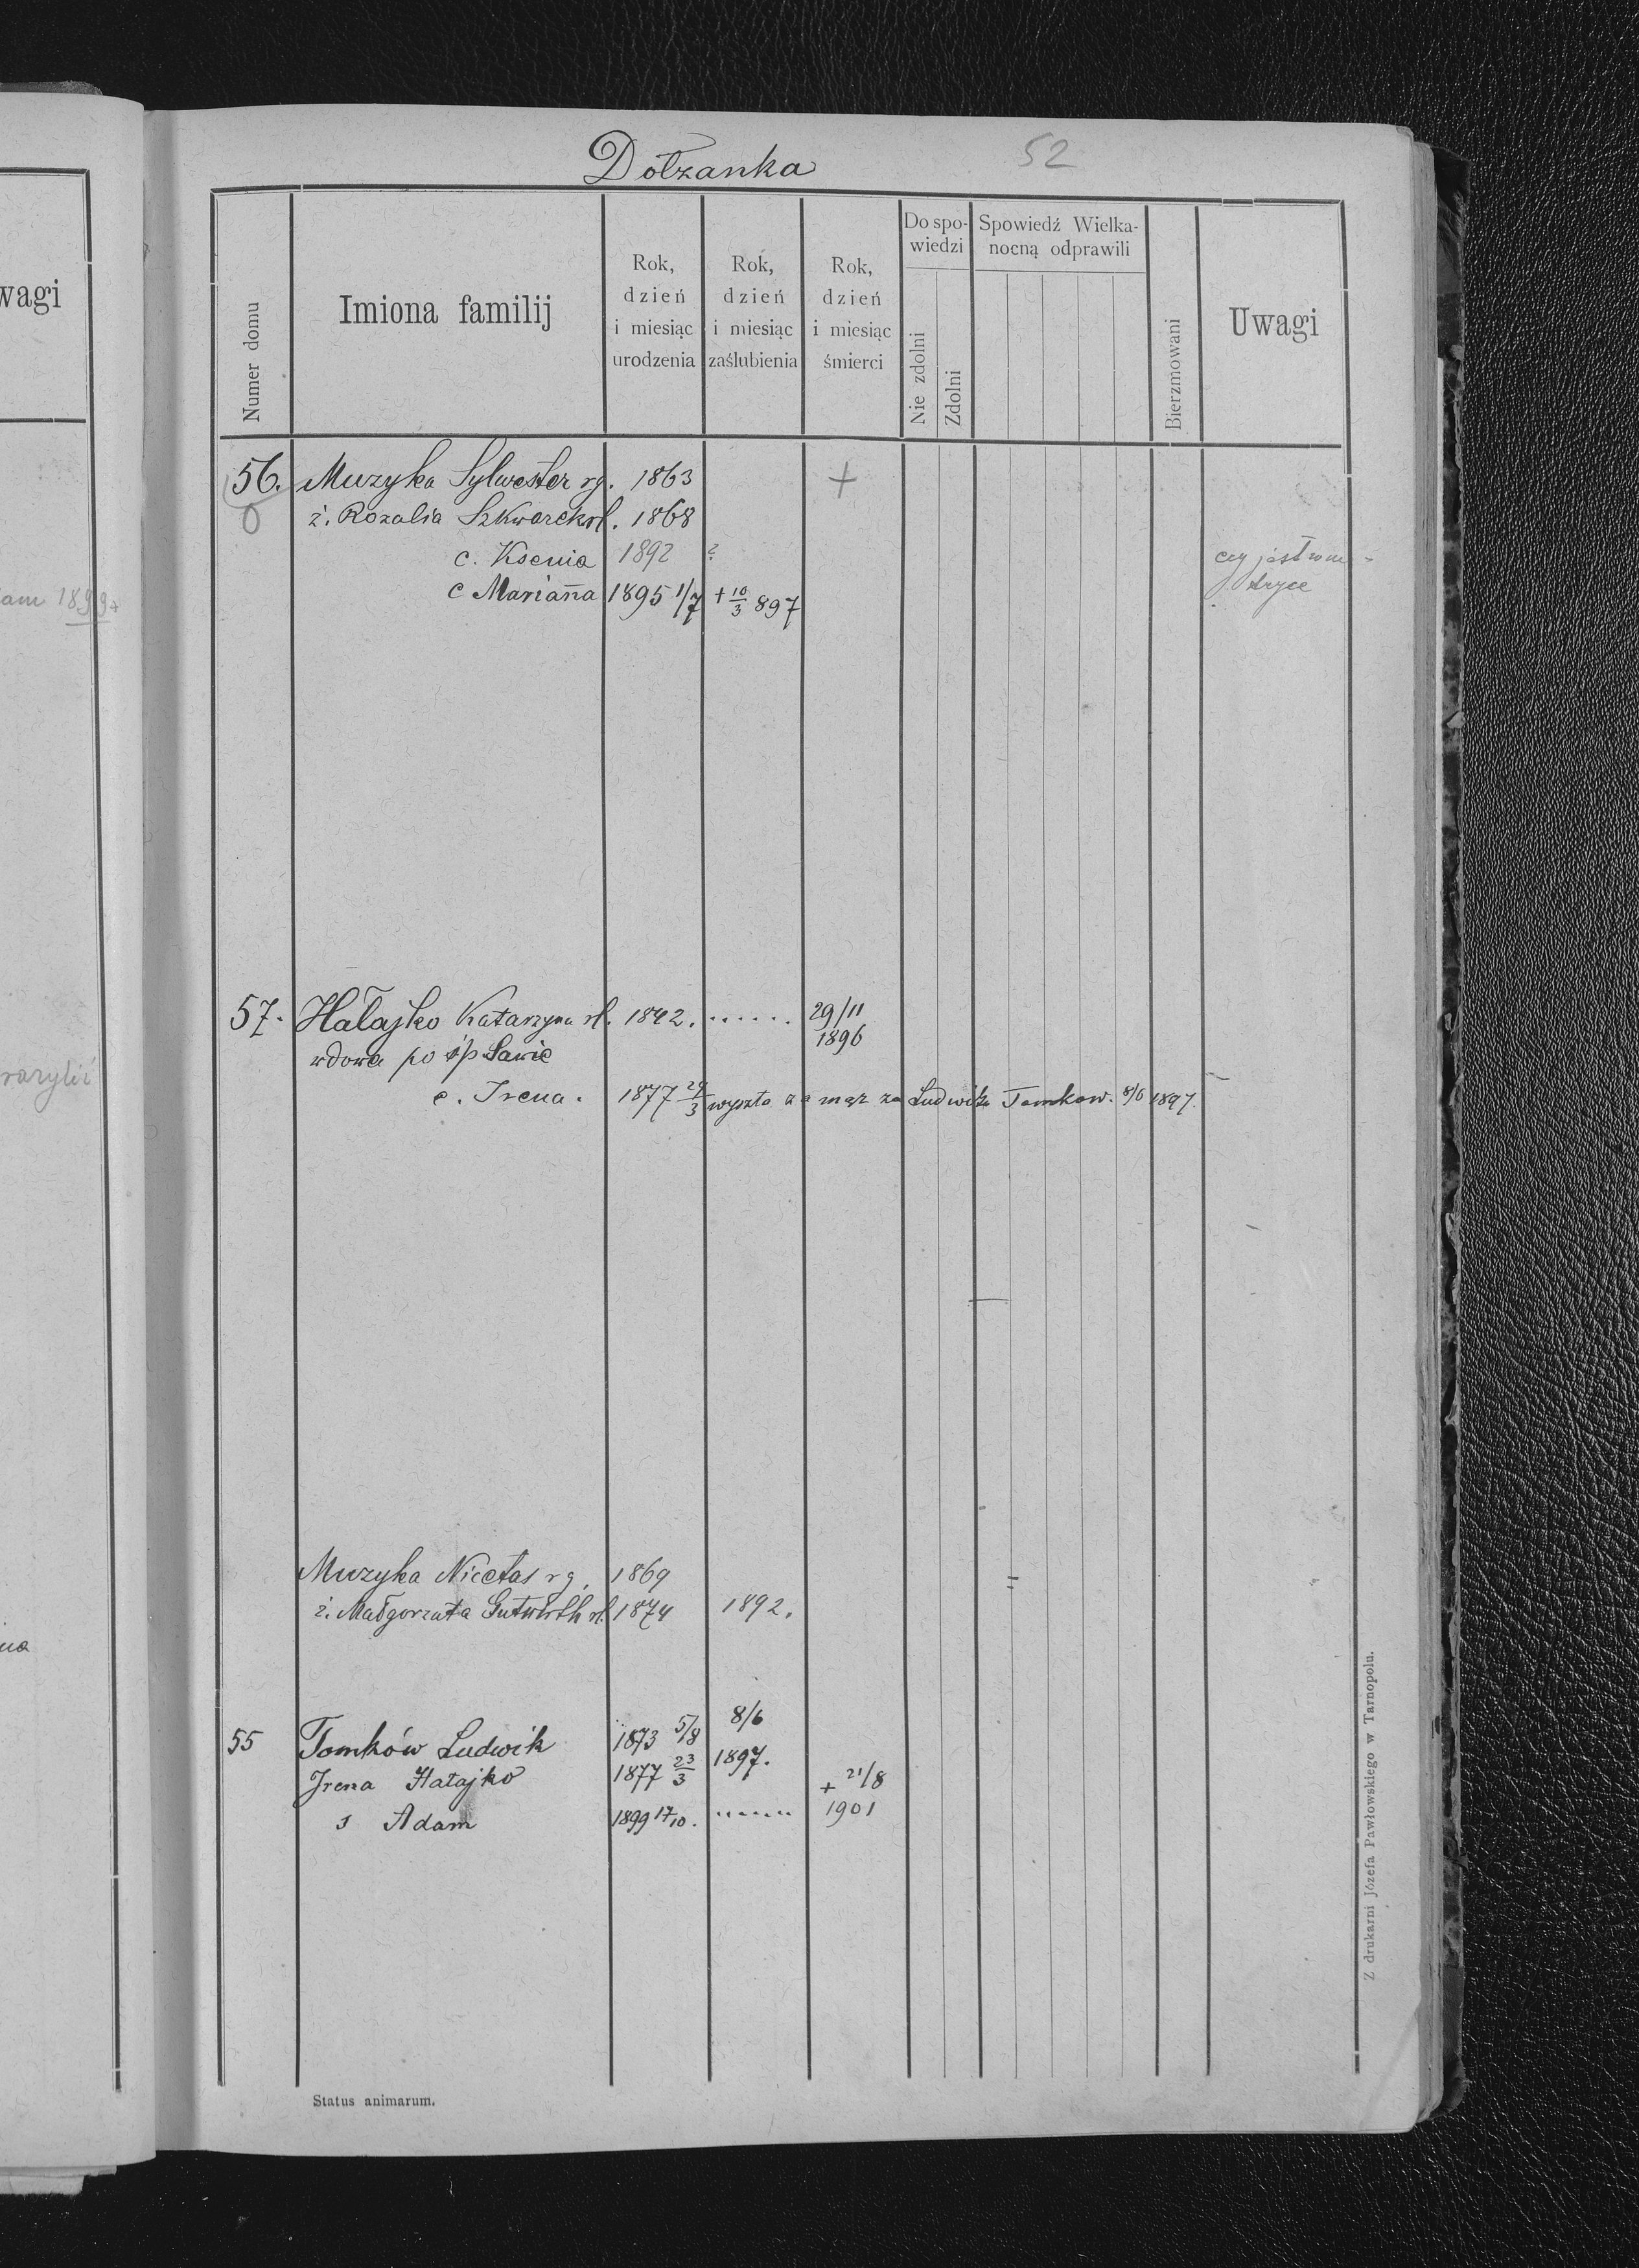 wagi
am 1899
Dołzanka 52
Numer domu
Imiona familij
Rok, dzień i miesiąc urodzenia
Rok, dzień i miesiąc zaślubienia
Rok, dzień i miesiąc śmierci
Do spo-
wiedzi
Nie zdolni
Zdolni
Spowiedź Wielka-
nocną odprawili
Bierzmowani
Uwagi
56. Muzyka Sylwester rg. 1863 +
0 ż. Rozalia Szkwarek rl. 1868
c. Ksenia 1892 ? czy jest
c Marianna 1895 1/7 + 10/3 897
57. Hałajko Katarzyna rl. 1842. ...... 29/11
1896
wdowa po śp Sawie
c. Irena. 1877 24/3 wyszła za mąż za Ludwika Tomkow. 8/6 1897.
Muzyka Nicetas rg. 1869
ż. Małgorzata Gutwirth rl. 1874 1892.
55 Tomków Ludwik 1873 5/8 8/6
Irena Hałajko 1877 23/3 1897.
s Adam 1899 17/10. ...... + 21/8
1901
Status animarum.
Z drukarni Józefa Pawłowskiego w Tarnopolu.